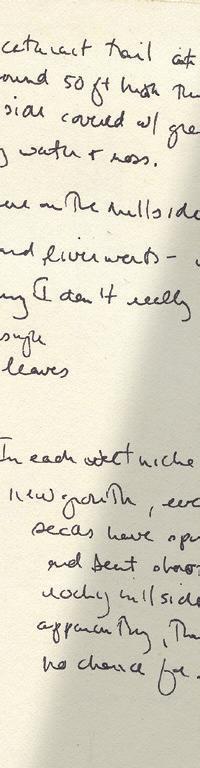 cataract trail
ound 50 ft high The
side covered w/ gre
g water & moss.
ere on the hillside
and liverworts -
I don't really
single
leaves
In each wet niche
new growth, eve
seeds have spr
and sent shoo
rocky hillside
apparently, Th
no chance for